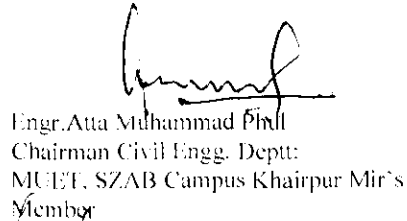 Engr.Atta Muhammad Phul
Chairman Civil Engg. Deptt:
MUET, SZAB Campus Khairpur Mir`s
Member